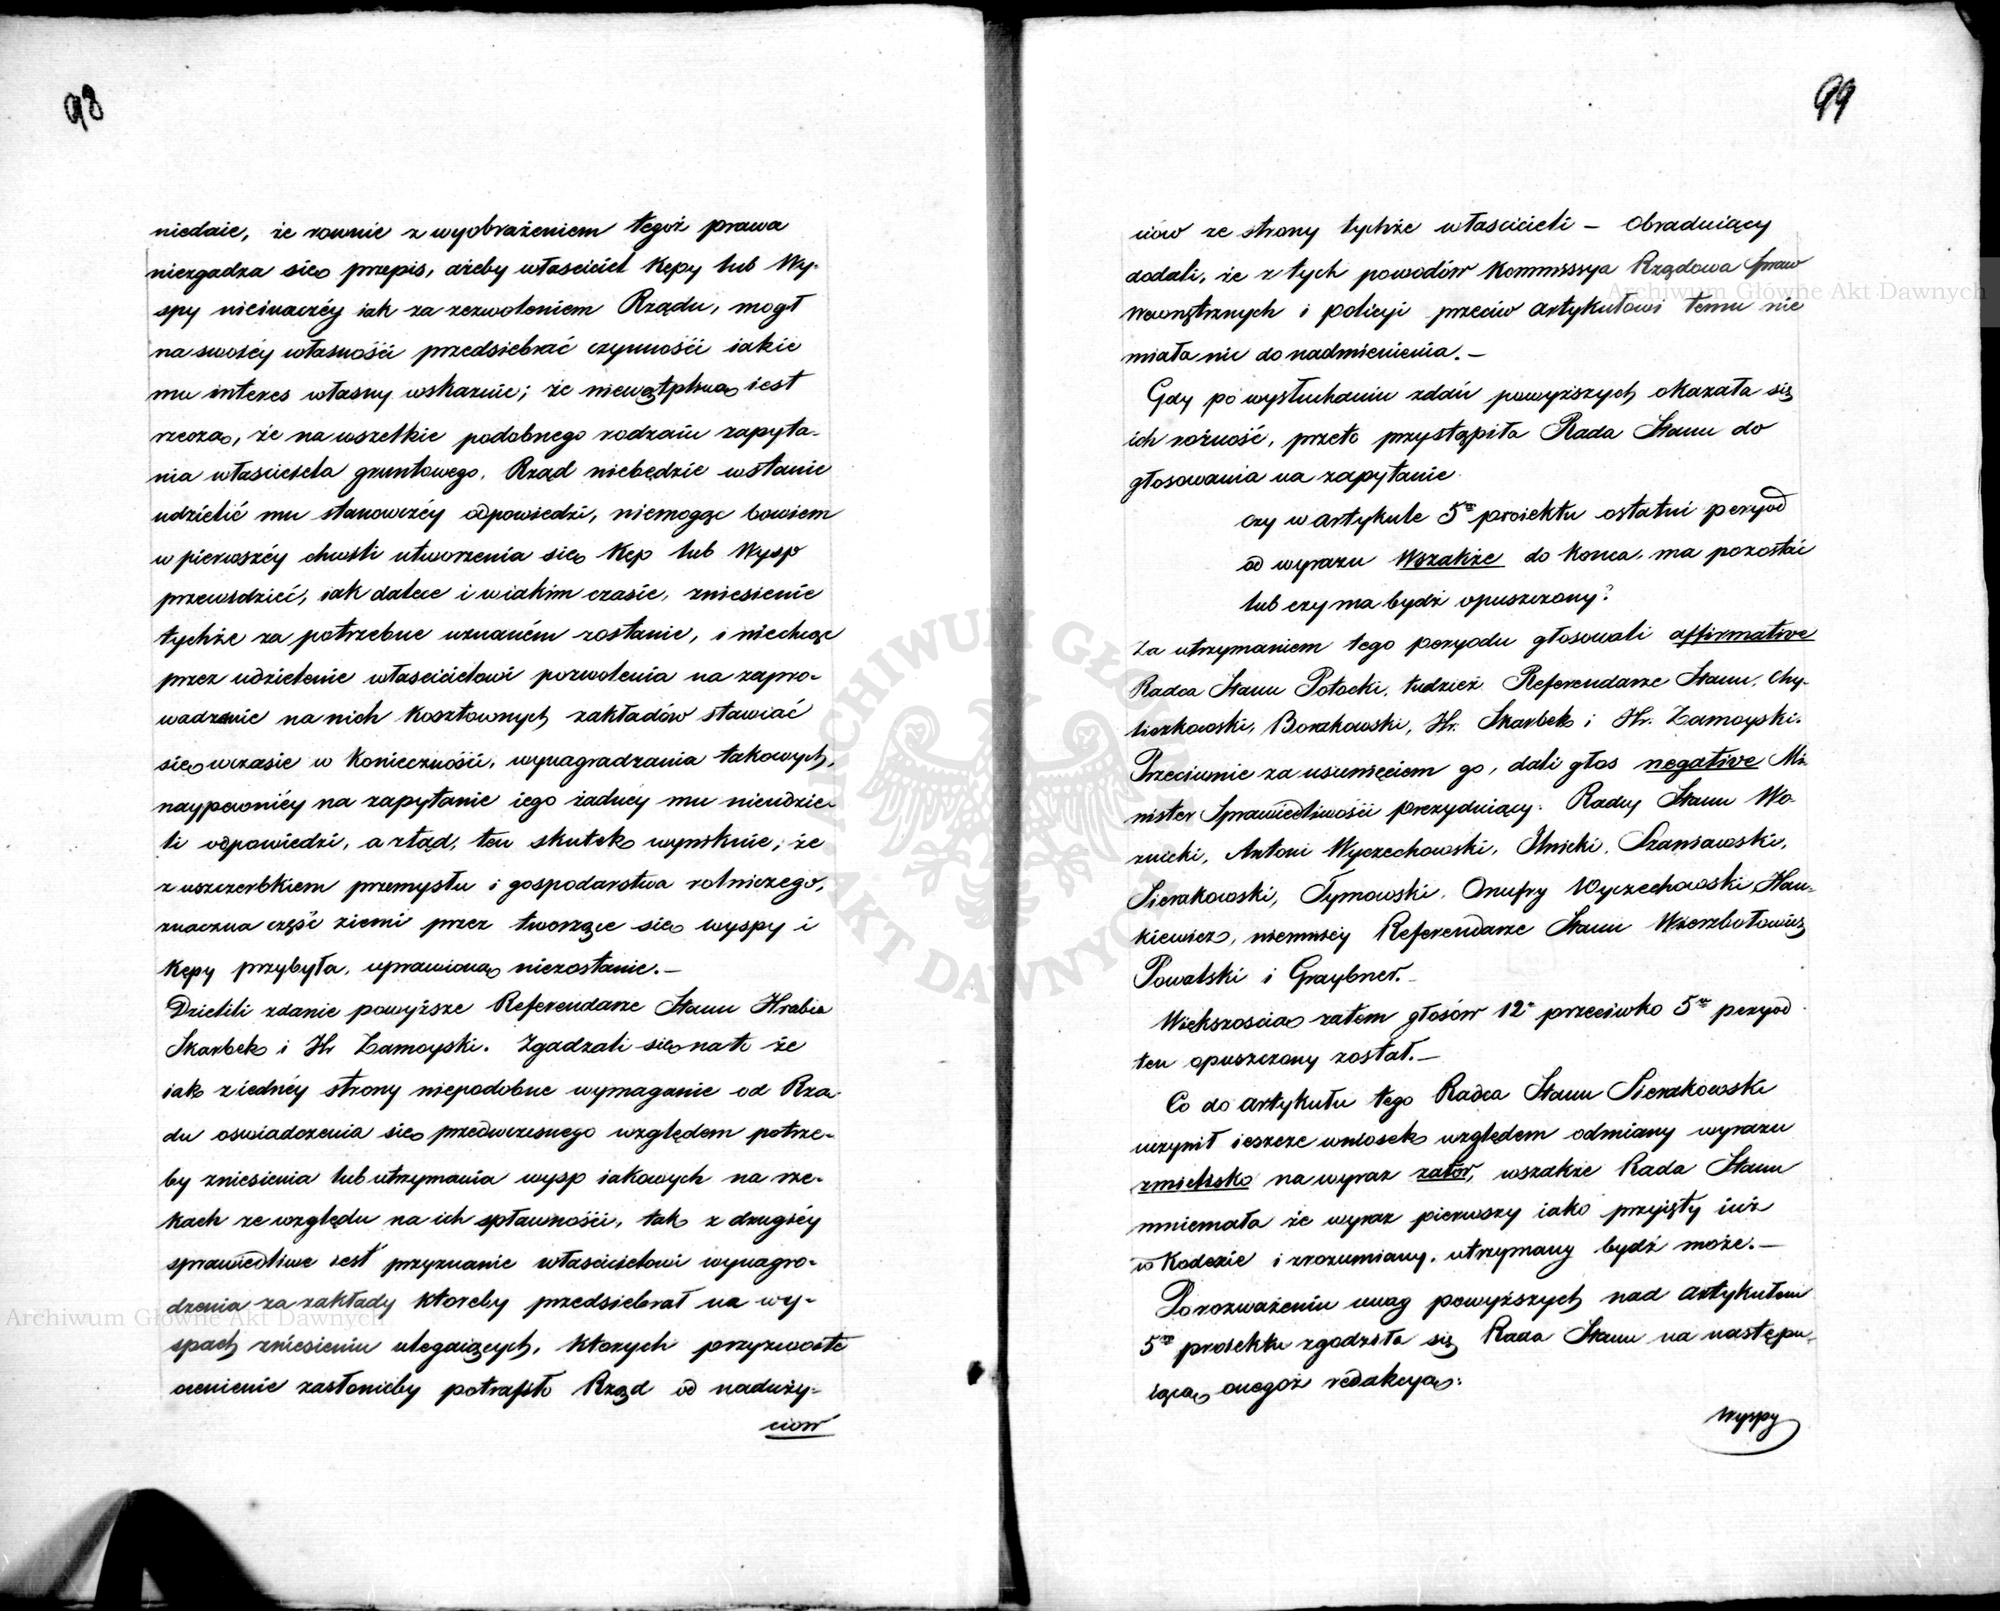 98
niedaie, że rownie z wyobrażeniem tegoż prawa
niezgadza się przepis, ażeby własciciel Kępy lub Wy-
spy nieinaczéy iak za zezwoleniem Rządu, mogł
na swoiéy własności przedsiebrać czynności iakie
mu interes własny wskazuie; że niewątpliwą iest
rzeczą, że na wszelkie podobnego rodzaiu zapyta-
nia własciciela gruntowego, Rząd niebędzie wstanie
udzielić mu stanowczéy odpowiedzi, niemogąc bowiem
w pierwszéy chwili utworzenia się Kęp lub Wysp
przewidzieć, iak dalece i w iakim czasie, zniesienie
tychże za potrzebne uznaném zostanie, i niechcąc
przez udzielenie własciścielowi pozwolenia na zapro-
wadzenie na nich kosztownych zakładów stawiać
się w czasie w konieczności, wynagradzania takowych,
naypewniéy na zapytanie iego żadnéy mu nieudzie-
li odpowiedzi, a ztąd, ten skutek wyniknie, że
z uszczerbkiem przemysłu i gospodarstwa rolniczego,
znaczna część ziemi przez tworzące się wyspy i
Kępy przybyła, uprawioną niezostanie.—
Dzielili zdanie powyższe Referendarze Stanu Hrabia
Skarbek i Hr Zamoyski. Zgadzali się na to że
iak z iednéy strony niepodobne wymaganie od Rzą-
du oswiadczenia się przedwczesnego względem potrze-
by zniesienia lub utrzymania wysp iakowych na rze-
kach ze względu na ich spławności, tak z drugiéy
sprawiedliwe iest przyznanie własciścielowi wynagro-
dzenia za zakłady ktoreby przedsiebrał na wy-
spach zniesieniu ulegaiących, ktorych przyzwoite
ocenienie zasłoniłby potrafiło Rząd od naduży-
ciow
99
ciów ze strony tychże właścicieli – Obraduiący
dodali, że z tych powodów Kommissya Rządowa Spraw
Wewnętrznych i policyi przeciw artykułowi temu nie
miała nic do nadmienienia.—
Gdy po wysłuchaniu zdań powyższych okazała się
ich rożność, przeto przystąpiła Rada Stanu do
głosowania na zapytanie
czy w artykule 5m proiektu ostatni peryod
od wyrazu Wszakże do końca, ma pozostać
lub czy ma bydź opuszczony?
Za utrzymaniem tego peryodu głosowali affirmative
Radca Stanu Potocki, tudzież Referendarze Stanu, Chy-
liczkowski, Borakowski, Hr. Skarbek i Hr. Zamoyski.
Przeciwnie za usunięciem go, dali głos negative Mi-
nister Sprawiedliwości prezyduiący: Radcy Stanu Wo-
znicki, Antoni Wyczechowski, Ilnicki, Szaniawski,
Sierakowski, Tymowski, Onufry Wyczechowski, Han-
kiewicz, niemniéy Referendarze Stanu Wierzbołowicz
Powalski i Graybner.—
Większością zatem głosów 12u przeciwko 5u peryod
ten opuszczony został.—
Co do artykułu tego Radca Stanu Sierakowski
uczynił ieszcze wniosek względem odmiany wyrazu
zmielisko na wyraz zator, wszakże Rada Stanu
mniemała że wyraz pierwszy iako przyięty iuż
w Kodexie i zrozumiany, utrzymany bydź może.—
Po rozważeniu uwag powyższych nad artykułem
5m proiektu zgodziła się Rada Stanu na następu-
iącą onegoż redakcyą:
Wyspy
Archiwum Główne Akt Dawnych
Archiwum Główne Akt Dawnych
ARCHIWUM GŁÓWNE AKT DAWNYCH